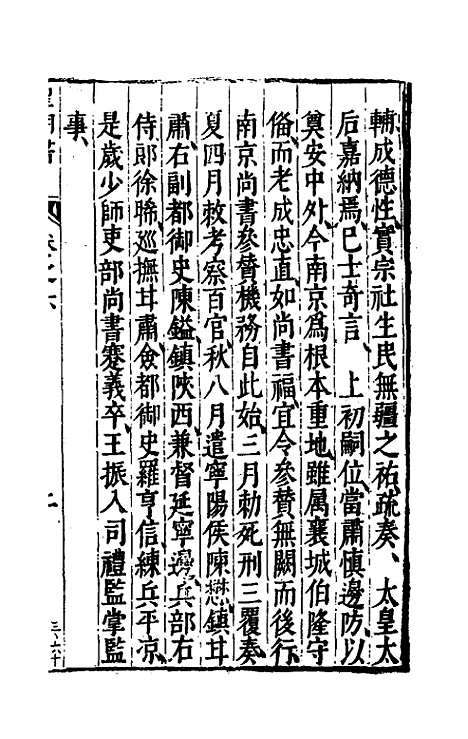 輔成德性實宗社生民無疆之祐疏奏、太皇太
后嘉納焉巳士奇言、上初嗣位當肅慎邊防以
奠安中外今南京爲根本重地雖属襄城伯隆守
俻而老成忠直如尚書福宜令参賛無闕而後行
南京尚書参賛機務自此始三月勑死刑三覆奏
夏四月敕考察百官秋八月遣寧陽侯陳懋鎮甘
肅右副都御史陳鎰鎮陝西兼督延寧邊兵部右
侍郎徐晞巡撫甘肅僉都御史羅亨信練兵平凉
是歲少師吏部尚書蹇義卒王振入司禮監掌監
事、
卷之六